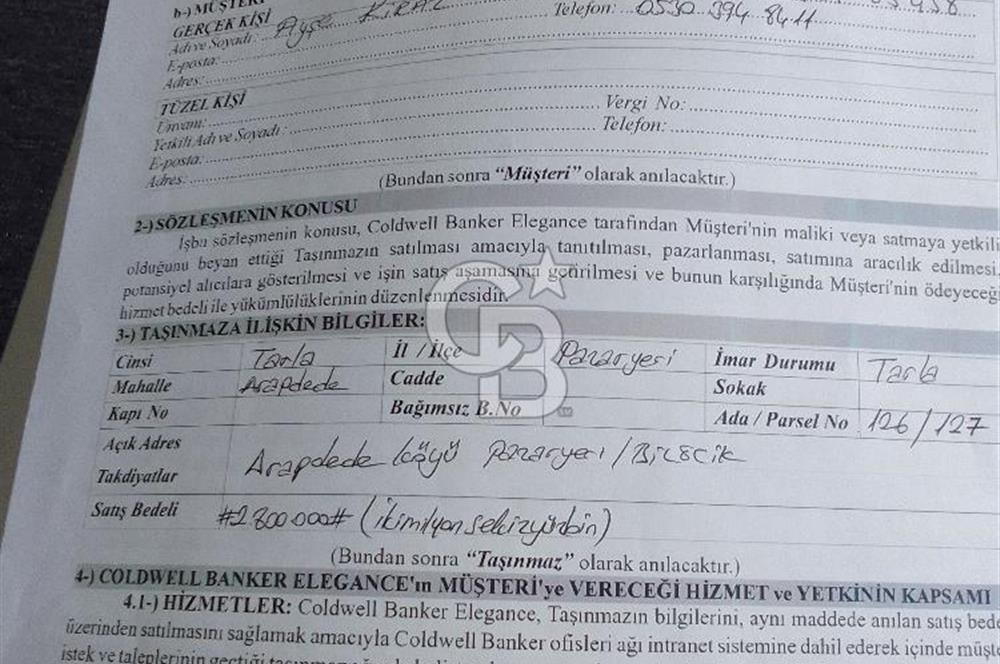 b-) MÜŞTERİ
GERÇEK KİŞİ
Adı ve Soyadı: Ayşe KIRAZ Telefon: 0530 394 84 11
E-posta:
Adres:
TÜZEL KİŞİ
Ünvanı: Vergi No:
Yetkili Adı ve Soyadı: Telefon:
E-posta:
Adres:
(Bundan sonra “Müşteri” olarak anılacaktır.)
2-) SÖZLEŞMENİN KONUSU
İşbu sözleşmenin konusu, Coldwell Banker Elegance tarafından Müşteri'nin maliki veya satmaya yetkili
olduğunu beyan ettiği Taşınmazın satılması amacıyla tanıtılması, pazarlanması, satımına aracılık edilmesi
potansiyel alıcılara gösterilmesi ve işin satış aşamasına getirilmesi ve bunun karşılığında Müşteri'nin ödeyeceği
hizmet bedeli ile yükümlülüklerinin düzenlenmesidir.
3-) TAŞINMAZA İLİŞKİN BİLGİLER:
Cinsi Tarla İl / İlçe Pazaryeri İmar Durumu Tarla
Mahalle Arapdede Cadde Sokak
Kapı No Bağımsız B.No Ada / Parsel No 126/127
Açık Adres Arapdede köyü Pazaryeri / BİLECİK
Takdiyatlar
Satış Bedeli #2.800.000# (ikimilyonsekizyüzbin)
(Bundan sonra “Taşınmaz” olarak anılacaktır.)
4-) COLDWELL BANKER ELEGANCE'ın MÜŞTERİ'ye VERECEĞİ HİZMET ve YETKİNİN KAPSAMI
4.1-) HİZMETLER: Coldwell Banker Elegance, Taşınmazın bilgilerini, aynı maddede anılan satış bede
üzerinden satılmasını sağlamak amacıyla Coldwell Banker ofisleri ağı intranet sistemine dahil ederek içinde müşte
istek ve taleplerinin geçtiği
CB
SM